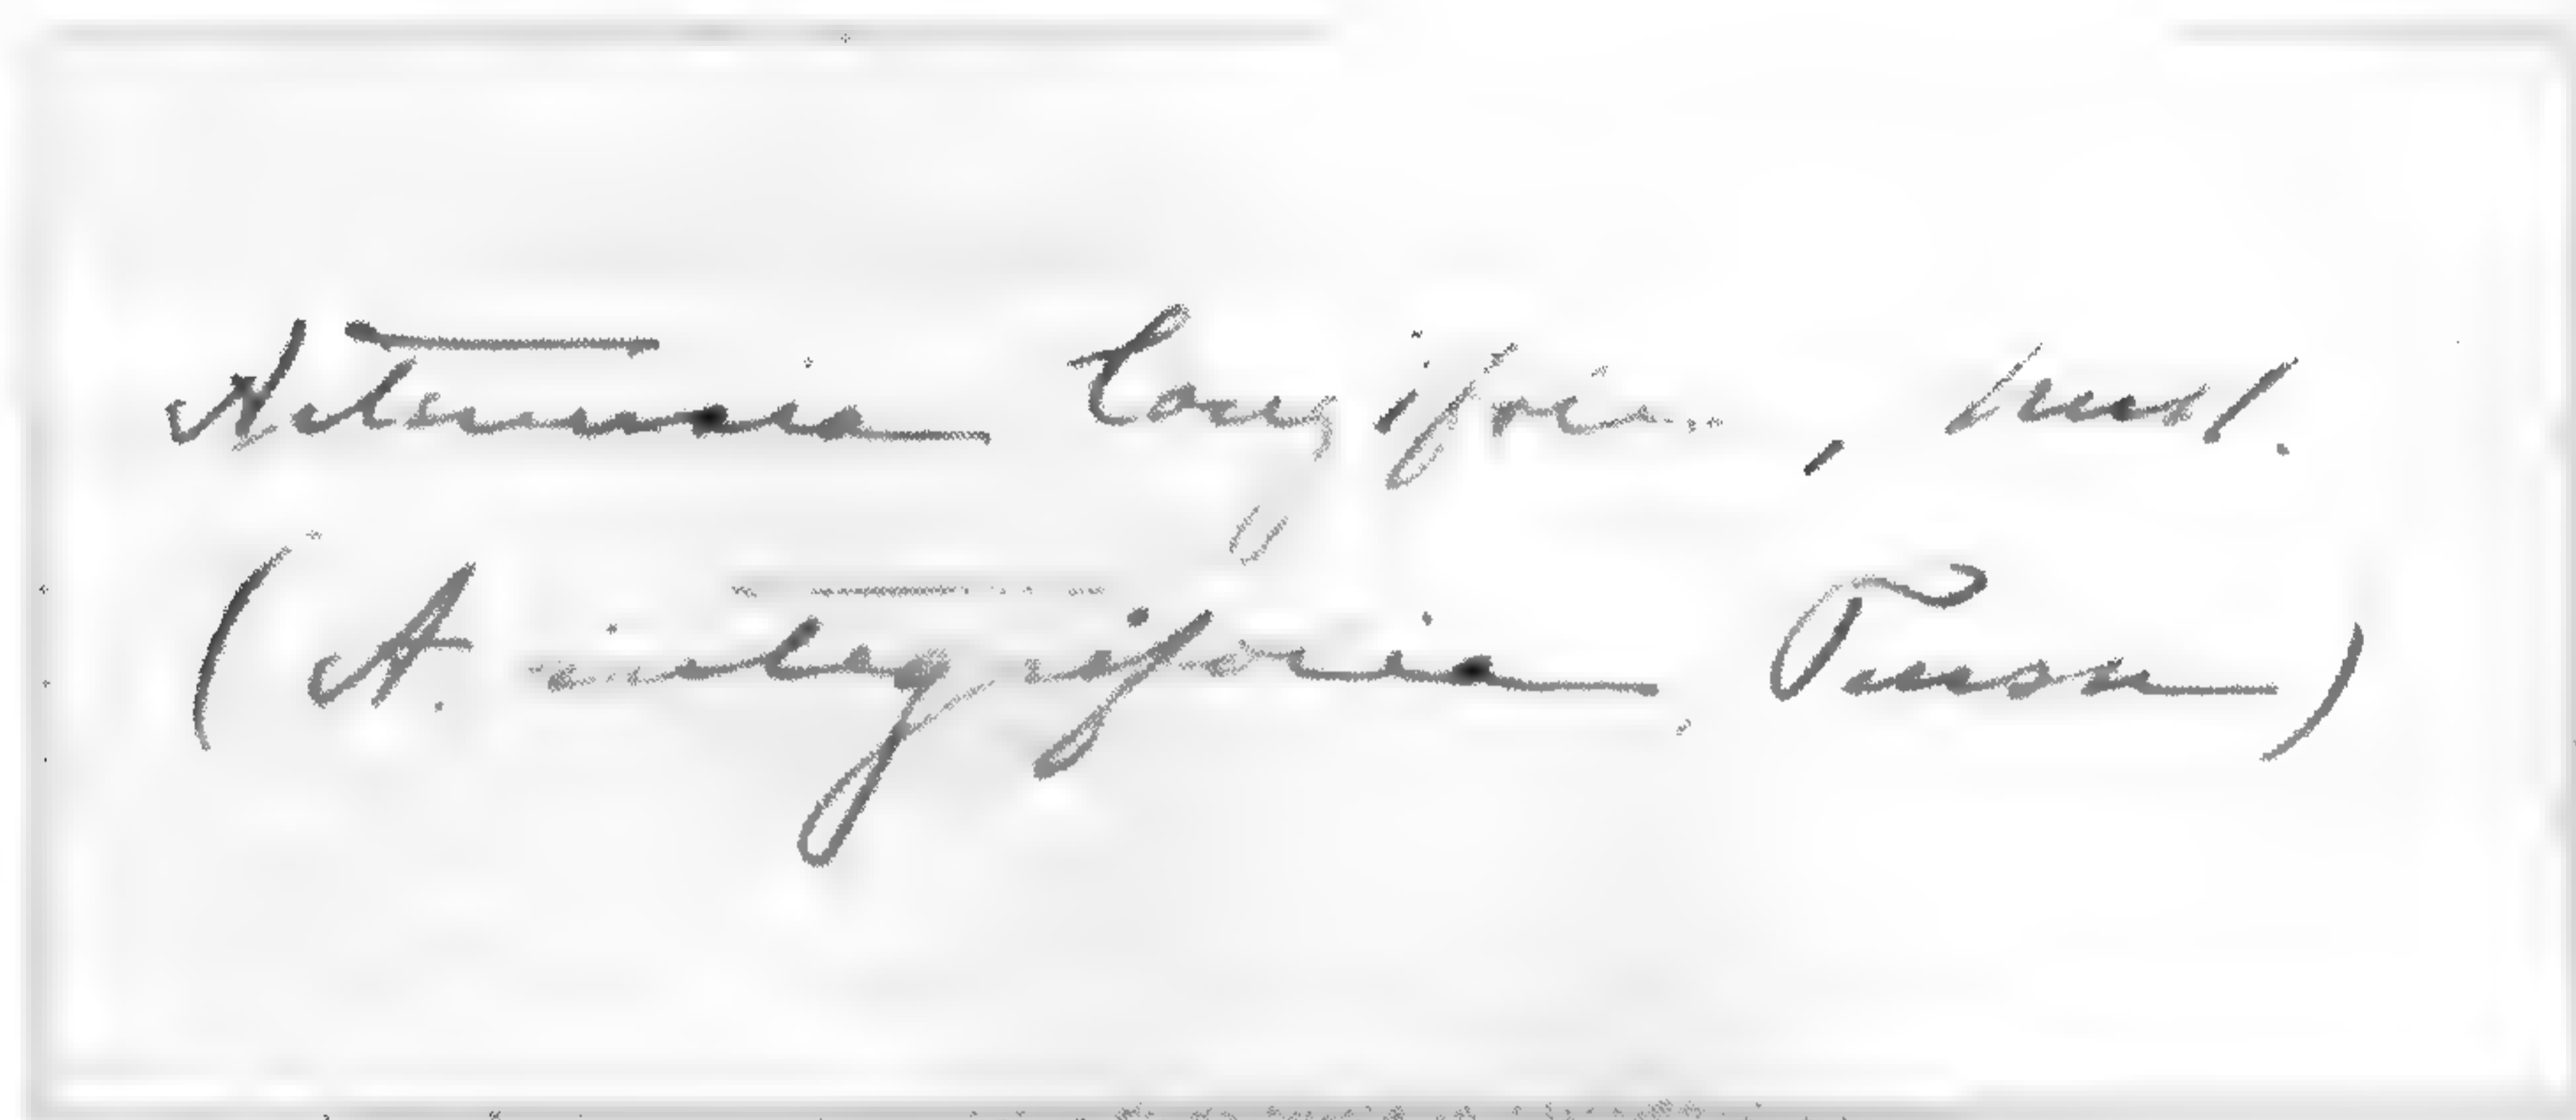 Artemisia longifolia, Nutt.
(A. integrifolia, Pursh)